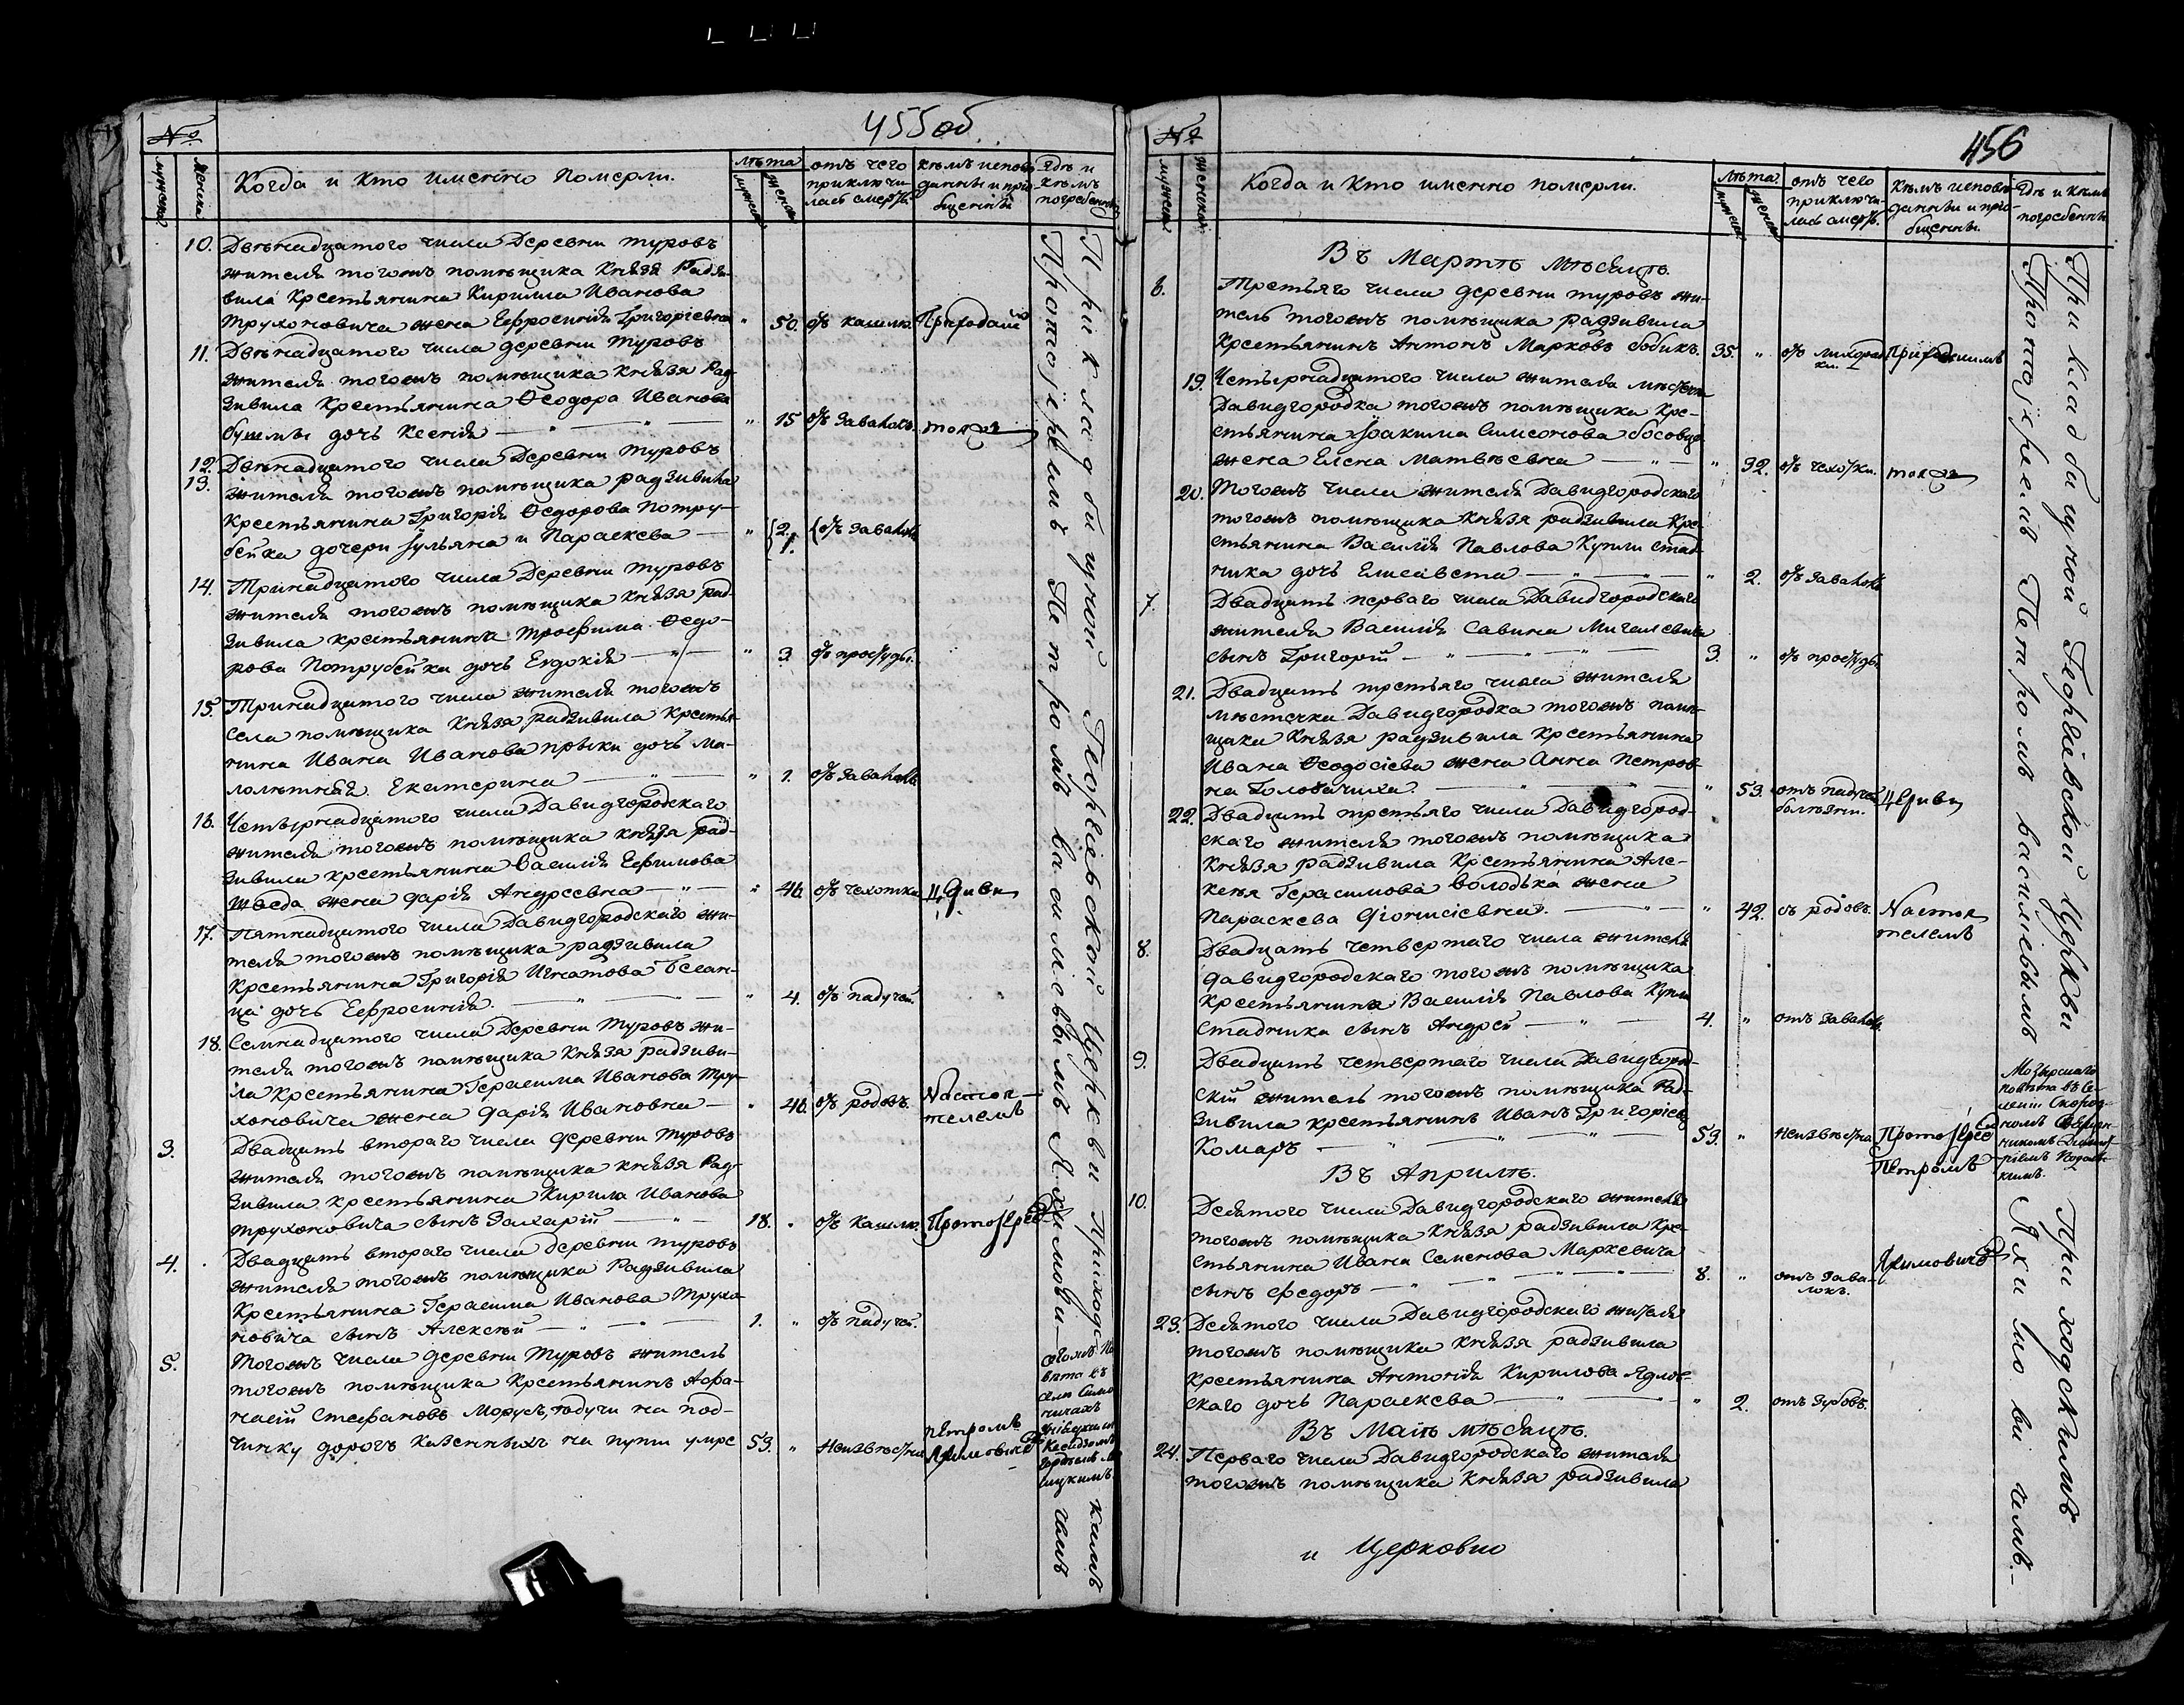 455об
№
мужска
женска
Когда и кто именно померли.
лѣта
мужск
женск
отъ чего приключилась смерть.
кѣмъ исповѣданны и пріобщенны
гдѣ и кѣмъ погребенны
10. Двѣнадцатого числа Деревни Туровъ
жителя тогожъ помѣщика Князя Радзи-
вила Крестьянина Кирилла Иванова
Трухоновича жена Ефросинія Григоріевна " 50. отъ кашлю.
11. Двѣнадцатого числа деревни Туровъ
жителя тогожъ помѣщика Князя Рад-
зивила Крестьянина Ѳеодора Иванова
дочь Ксенія — " — " 15 отъ завалокъ. тожъ
12. Двѣнадцатого числа Деревни Туровъ
13. жителя тогожъ помѣщика радзивила
Крестьянина Григорія Ѳедорова Потру-
бейка дочери Іульяна и Параскева — " 2. 1. отъ завалокъ
14. Тринадцатого числа Деревни Туровъ
жителя тогожъ помѣщика Князя рад-
зивила крестьянина Трофима Ѳедо-
рова Потрубейка дочь Евдокія — " — " 3 отъ простуды.
15. Тринадцатого числа жителя тогожъ
села помѣщика Князя радзивила Крестья-
нина Ивана Иванова дочь ма-
лолѣтная Екатерина — " — " 1. отъ завалокъ
16. Четырнадцатого числа Давидгородскаго
жителя тогожъ помѣщика князя рад-
зивила крестьянина Василія Ефимова
жена Дарія Андреевна — " — " 46 отъ чехотки
17. Пятнадцатого числа Давидгородскаго жи-
теля тогожъ помѣщика радзивила
Крестьянина Григорія Игнатова
дочь Ефросинія. — " — " 4. отъ падучей.
18. Семнадцатого числа Деревни Туровъ жи-
теля тогожъ помѣщика Князя радзиви-
ла Крестьянина Герасима Иванова Тру-
хоновича жена Дарія Ивановна — " 46. отъ родовъ. Настоя-
телемъ
3. Двадцать втораго числа деревни Туровъ
жителя тогожъ помѣщика князя Рад-
зивила крестьянина Кирила Иванова
Трухоновича сынъ Захарій — " — 18. " отъ кашлю. Протоіере
4. Двадцать втораго числа деревни Туровъ
жителя тогожъ помѣщика Радзивила
Крестьянина Герасима Иванова Трухо-
новича сынъ Алексѣй — " — 1. " отъ падучей.
5. Тогожъ числа деревни Туровъ житель
тогожъ помѣщика Крестьянинъ Афа-
насій Стефановъ Морусъ, едучи на под-
чинку дорогъ Казенныхъ на пути умре 53. " Неизвѣстна Петромъ
При кладбищной Георгіевской Церкви Приходскимъ
Протоіереемъ Петромъ Васильевымъ Яхимовичамъ
456
№
мужска
женска
Когда и кто именно померли.
лѣта
мужск
женск
отъ чего приключилась смерть.
Кѣмъ исповѣданны и пріобщенны.
Гдѣ и кѣмъ погребенны
Въ Мартѣ мѣсяцѣ.
6. Третьяго числа деревни Туровъ жи-
тель тогожъ помѣщика радзивила
Крестьянинъ Антонъ Марковъ Бобикъ. 35. " отъ лихорадки.
19. Четырнадцатого числа жителя мѣстечка
Давидгородка тогожъ помѣщика Кре-
стьянина Іоакима Симеонова
жена Елена Матвѣевна — " — " 32. отъ чехотки. тожъ
20. Тогожъ числа жителя Давидгородскаго
тогожъ помѣщика Князя радзивила Кре-
стьянина Василія Павлова Купли Стад-
ника дочь Елисавета — " — " 2. отъ завалокъ
7. Двадцать перваго числа Давидгородскаго
жителя Василія Савина
сынъ Григорій — " — " — 3. " отъ простуды
21. Двадцать третьяго числа жителя
мѣстечка Давидгородка тогожъ помѣ-
щика Князя радзивила Крестьянина
Ивана Ѳеодосіева жена Анна Петров-
на Головачиха — " — " 53. отъ падучей болѣзни.
22. Двадцать третьяго числа Давидгород-
скаго жителя тогожъ помѣщика
Князя радзивила Крестьянина Але-
ксѣя Герасимова Володька жена
Параскева Діонисіевна. — " — " 42. отъ родовъ. Настоя
телемъ
8. Двадцать четвертаго числа жителя
Давидгородскаго тогожъ помѣщика
Крестьянина Василія Павлова Купли
Стадника сынъ Андрей — " — 4. " отъ завалокъ.
9. Двадцать четвертаго числа Давидгород-
скій житель тогожъ помѣщика Рад-
зивила крестьянинъ Иванъ Григоріевъ
Комаръ — " — " — " — 53. " Неизвѣстна Протоіерее
Петромъ
Въ Априлѣ.
10. Десятого числа Давидгородскаго жителя
тогожъ помѣщика Князя радзивила Кре-
стьянина Ивана Семенова Маркевича
сынъ Федоръ — " — " — 8. " отъ зава-
локъ.
23. Десятого числа Давидгородскаго жителя
тогожъ помѣщика князя радзивила
Крестьянина Антонія Кирилова Ядлов-
скаго дочь Параскева — " — " 2. отъ зубовъ.
Въ Маіѣ мѣсяцѣ.
24. Перваго числа Давидгородскаго жителя
тогожъ помѣщика Князя радзивила
и Церковно
При кладбищной Георгіевской Церкви Приходскимъ
Протоіереемъ Петромъ Васильевымъ Яхимовичемъ.